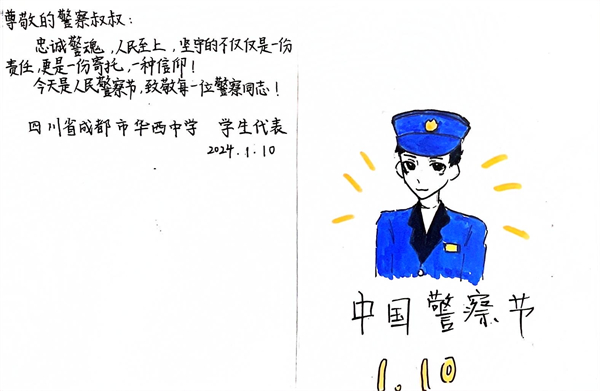 尊敬的警察叔叔：
忠诚警魂，人民至上，坚守的不仅仅是一份
责任，更是一份寄托，一种信仰！
今天是人民警察节，致敬每一位警察同志！
四川省成都市华西中学 学生代表
2024.1.10
中国警察节
1.10